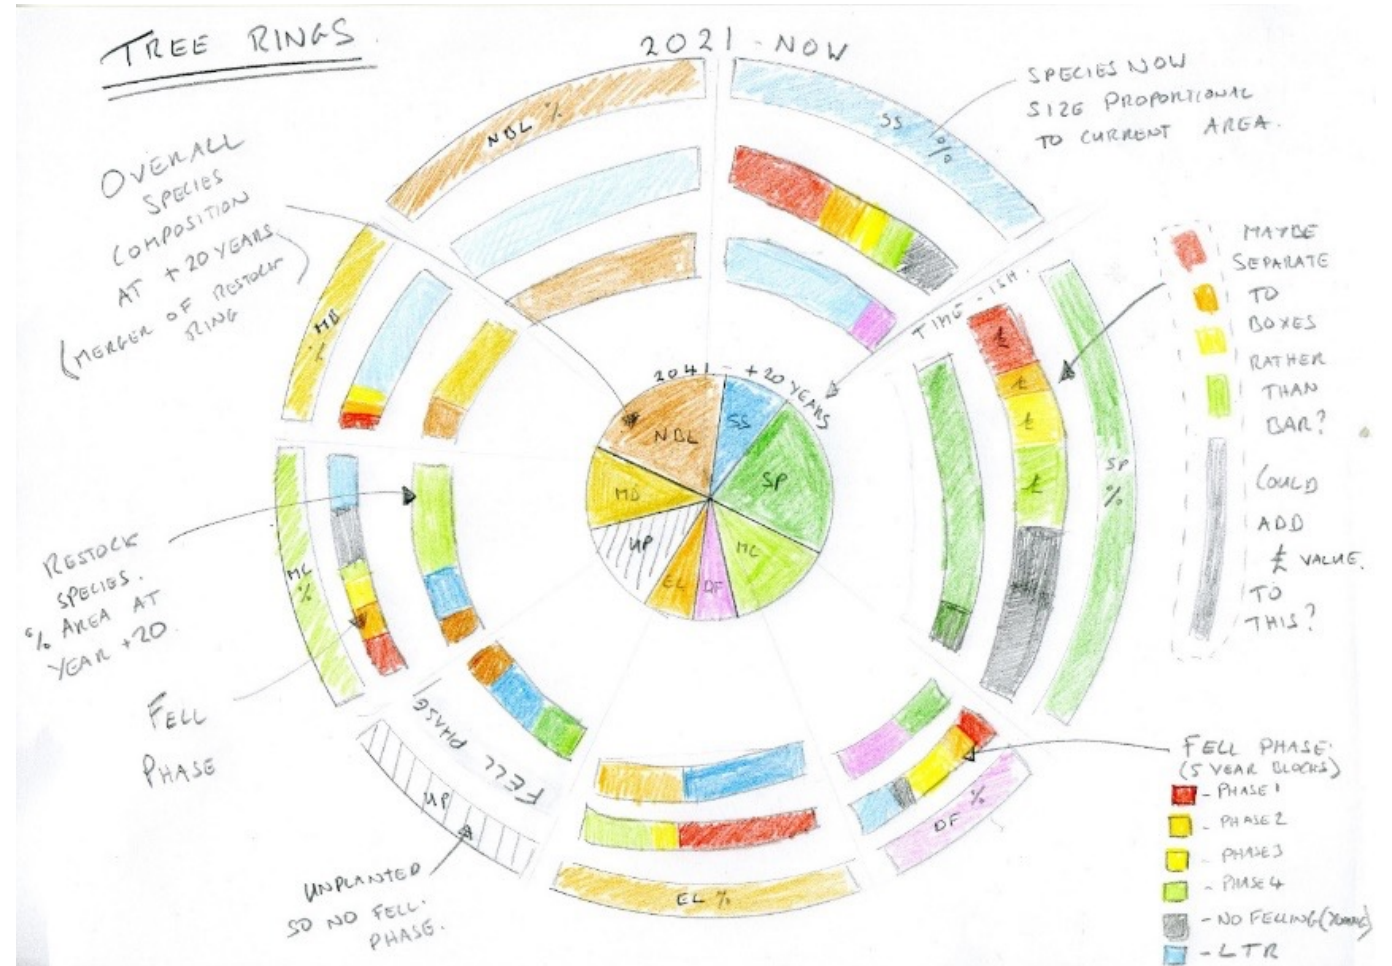 TREE RINGS
2021 - NOW
SPECIES NOW
SIZE PROPORTIONAL
TO CURRENT AREA.
NBL %
SS %
OVERALL
SPECIES
COMPOSITION
AT + 20 YEARS
(MERGER OF RESTOCK
RING)
MB %
TIME - ISH.
£
£
£
£
SP %
MAYBE
SEPARATE
TO
BOXES
RATHER
THAN
BAR?
COULD
ADD
£ VALUE.
TO
THIS?
2041 - + 20 YEARS
NBL
SS
SP
MB
MC
UP
EL
DF
MC %
RESTOCK
SPECIES.
% AREA AT
YEAR +20.
FELL
PHASE
FELL PHASE
UP
UNPLANTED
SO NO FELL.
PHASE.
EL %
DF %
FELL PHASE.
(5 YEAR BLOCKS)
- PHASE 1
- PHASE 2
- PHASE 3
- PHASE 4
- NO FELLING (YOUNG)
- LTR